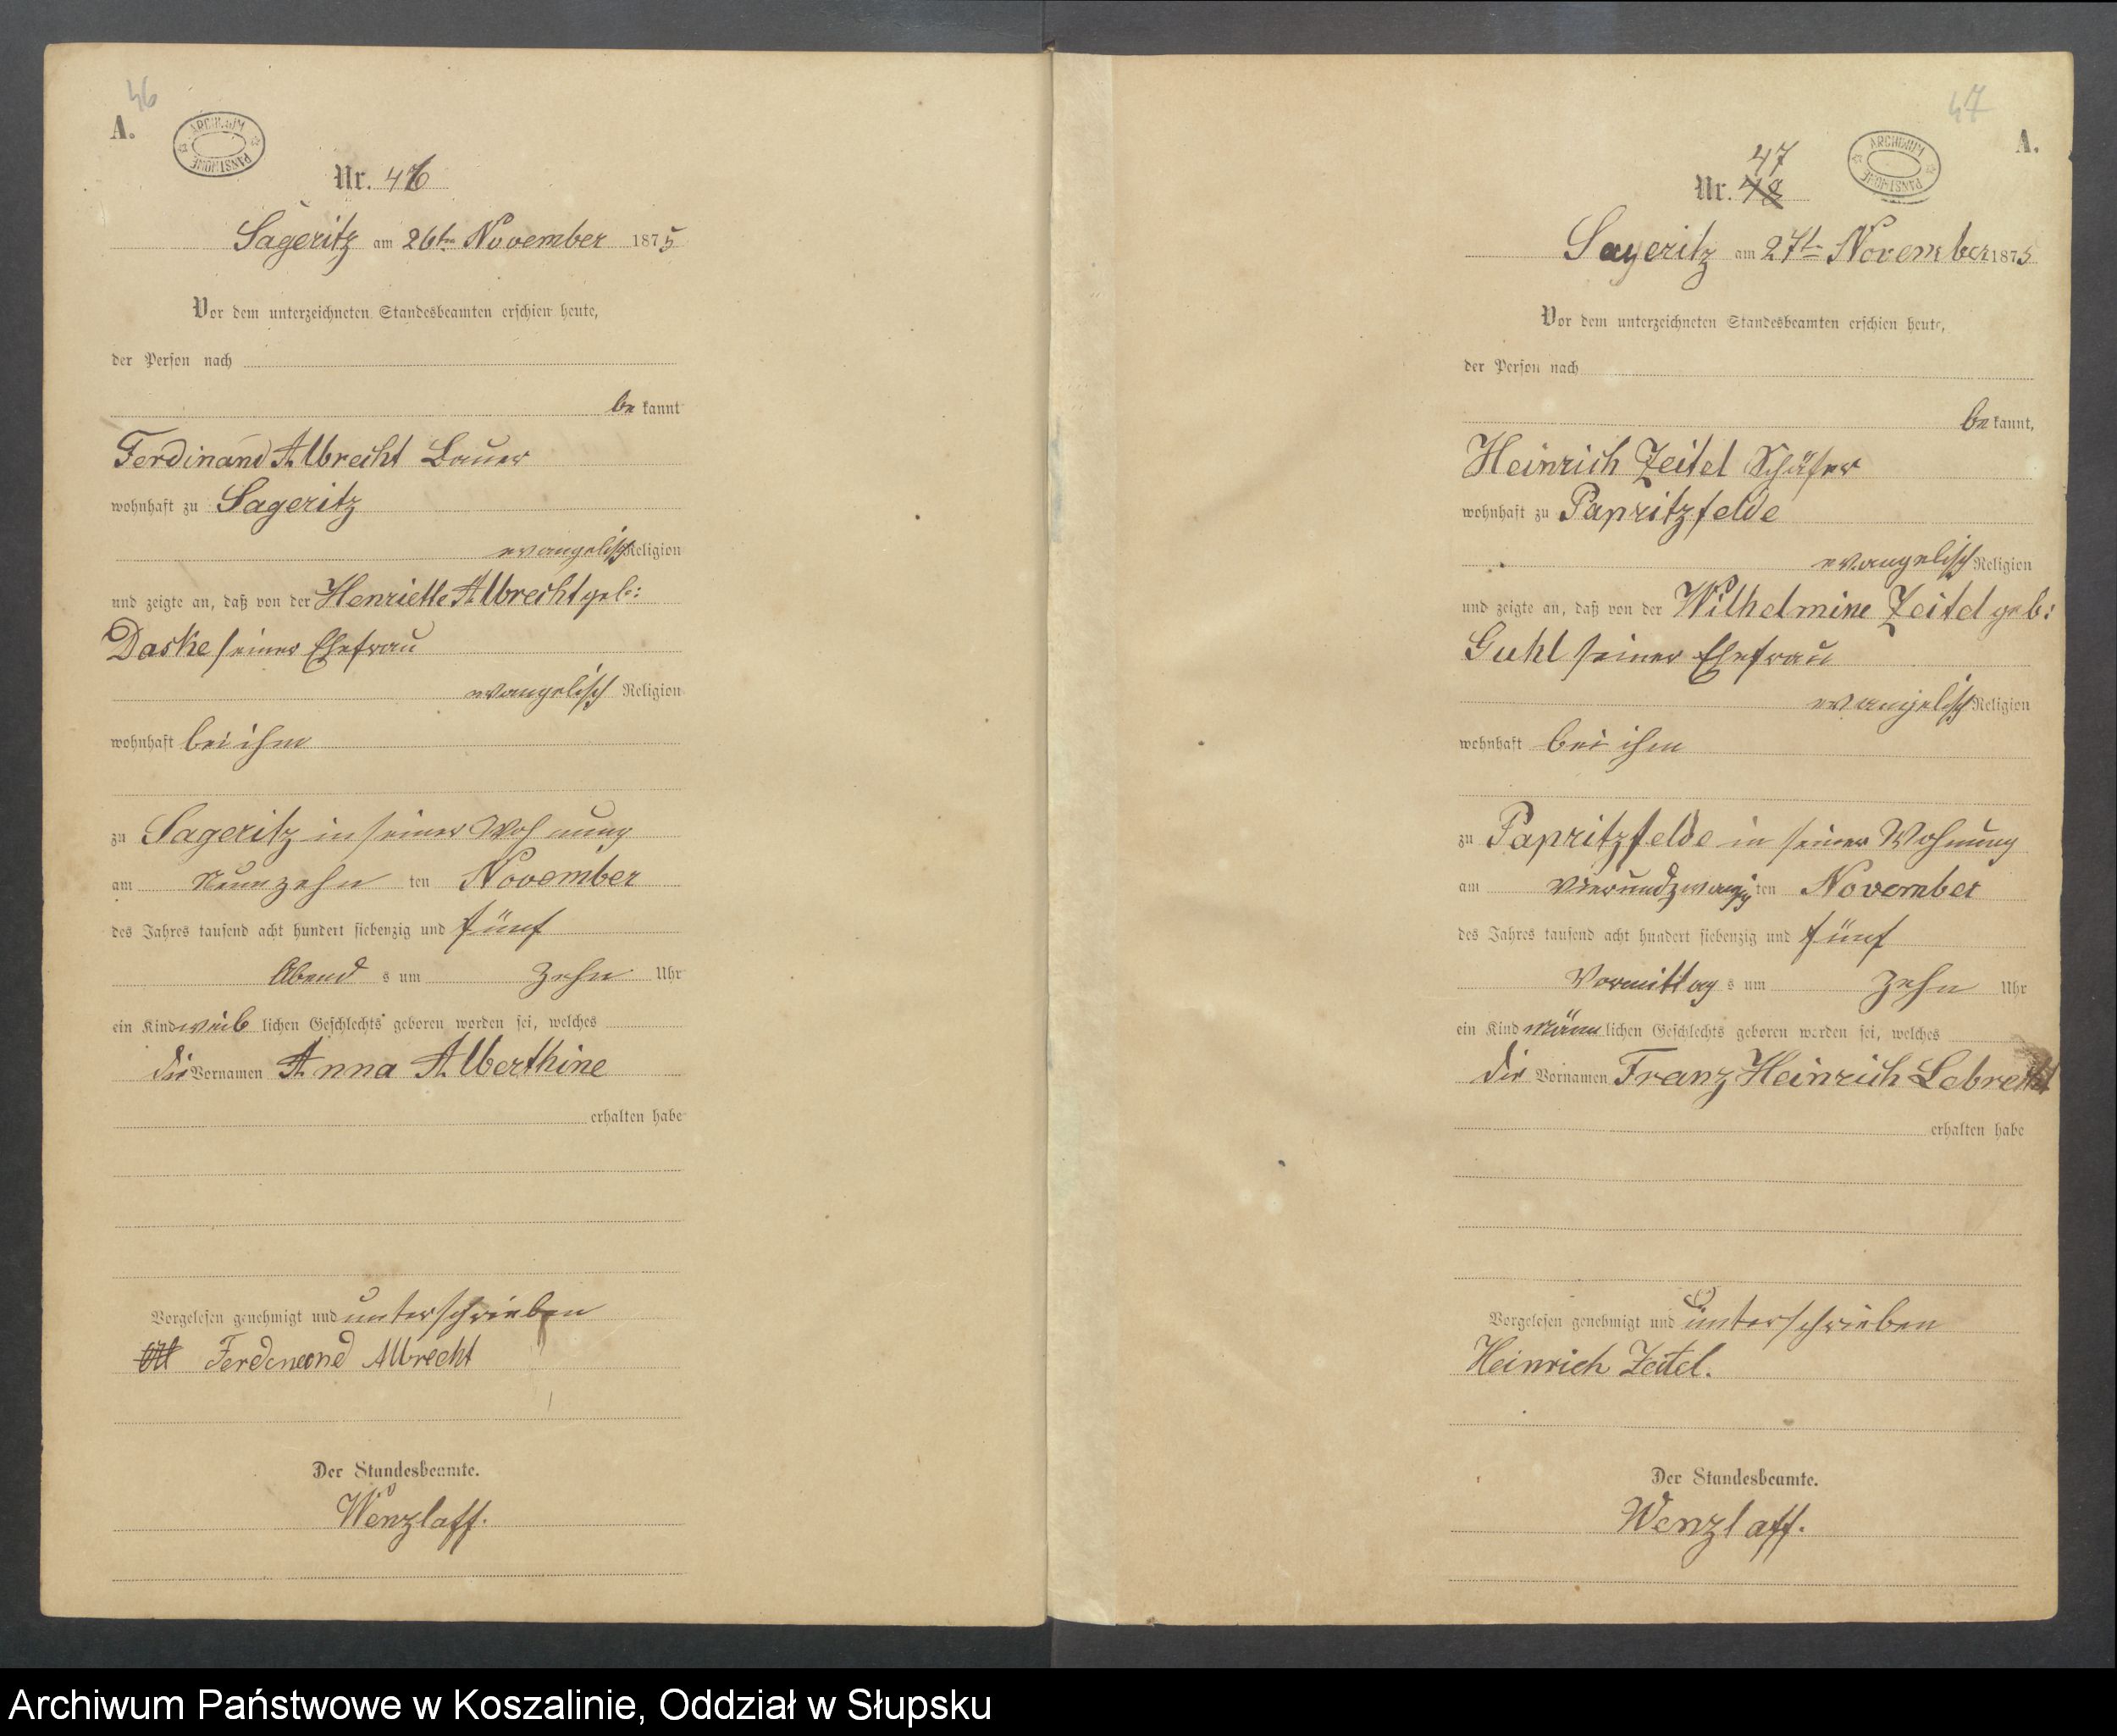 46
A.
ARCHIWUM PAŃSTWOWE
Nr. 46
Sageritz am 26ten November 1875
Vor dem unterzeichneten Standesbeamten erschien heute,
der Person nach
be kannt
Ferdinand Albrecht Bauer
wohnhaft zu Sageritz
evangelisch Religion
und zeigte an, daß von der Henriette Albrecht geb:
Daske seiner Ehefrau
evangelisch Religion
wohnhaft bei ihm
zu Sageritz in seiner Wohnung
am Neunzehn ten November
des Jahres tausend acht hundert siebenzig und fünf
Abend s um zehn Uhr
ein Kind weib lichen Geschlechts geboren worden sei, welches
die Vornamen Anna Alberthine
erhalten habe
Vorgelesen genehmigt und unterschrieben
Ferdinand Albrecht
Der Standesbeamte.
Wenzlaff.
47
A.
ARCHIWUM PAŃSTWOWE
47
Nr. 48
Sageritz am 27t November 1875
Vor dem unterzeichneten Standesbeamten erschien heute,
der Person nach
be kannt,
Heinrich Zeitel Schäfer
wohnhaft zu Papritzfelde
evangelisch Religion
und zeigte an, daß von der Wilhelmine Zeitel geb:
Guhl seiner Ehefrau
evangelisch Religion
wohnhaft bei ihm
zu Papritzfelde in seiner Wohnung
am vierundzwanzig ten November
des Jahres tausend acht hundert siebenzig und fünf
Vormittag s um zehn Uhr
ein Kind männ lichen Geschlechts geboren worden sei, welches
die Vornamen Franz Heinrich Lebrecht
erhalten habe
Vorgelesen genehmigt und unterschrieben
Heinrich Zeitel.
Der Standesbeamte.
Wenzlaff.
Archiwum Państwowe w Koszalinie, Oddział w Słupsku